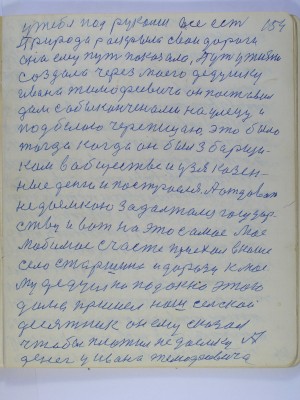 у тебя под руками все есть 154
Природа раздавила свои дороги
она ему путь показала, Путь у жизни
создала через моего дедушку
ивана тимофеевича он поставил
дом с
подбелою черепицаю это было
тогда когда он был збарщи-
ком в обществе и узял казен-
ные деньги и построился. А отдовать
недоимкою задолжал государ-
ству и вот на это самое Мое
Любимое счасте приехал в наше
село старшина и дорогу к
му дедушки подокно этого
дома пришел наш селской
десятник он ему сказал
чтобы платил недоимку А
денег у ивана тимофеевича